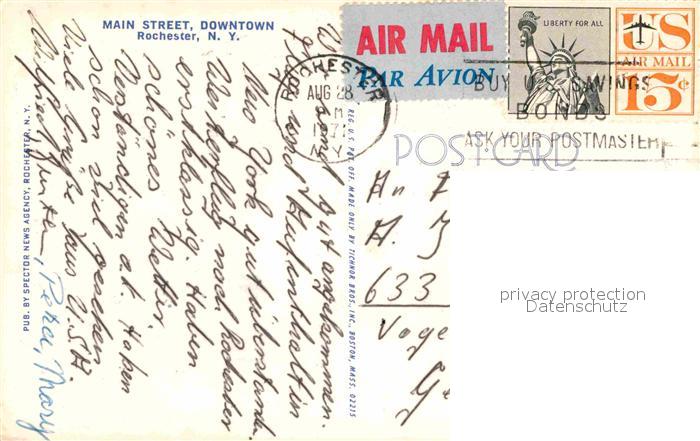 MAIN STREET, DOWNTOWN
Rochester, N. Y.
AIR MAIL
PAR AVION
LIBERTY FOR ALL
US
AIR MAIL
15¢
ROCHESTER
AUG 28
BUY U.S. SAVINGS
BONDS
ASK YOUR POSTMASTER
POST CARD
sind gut angekommen.
Flug und Aufenthalt in
New York gut überstanden.
Weiterflug nach Rochester
erstklassig. Haben
schönes Wetter.
o.k. Haben
schon viel gesehen
Viele Grüße aus USA.
Petra, Mary
An
H.
633
PUB. BY SPECTOR NEWS AGENCY, ROCHESTER, N.Y.
REG. U.S. PAT. OFF. MADE ONLY BY TICHNOR BROS., INC., BOSTON, MASS. 02215
privacy protection
Datenschutz